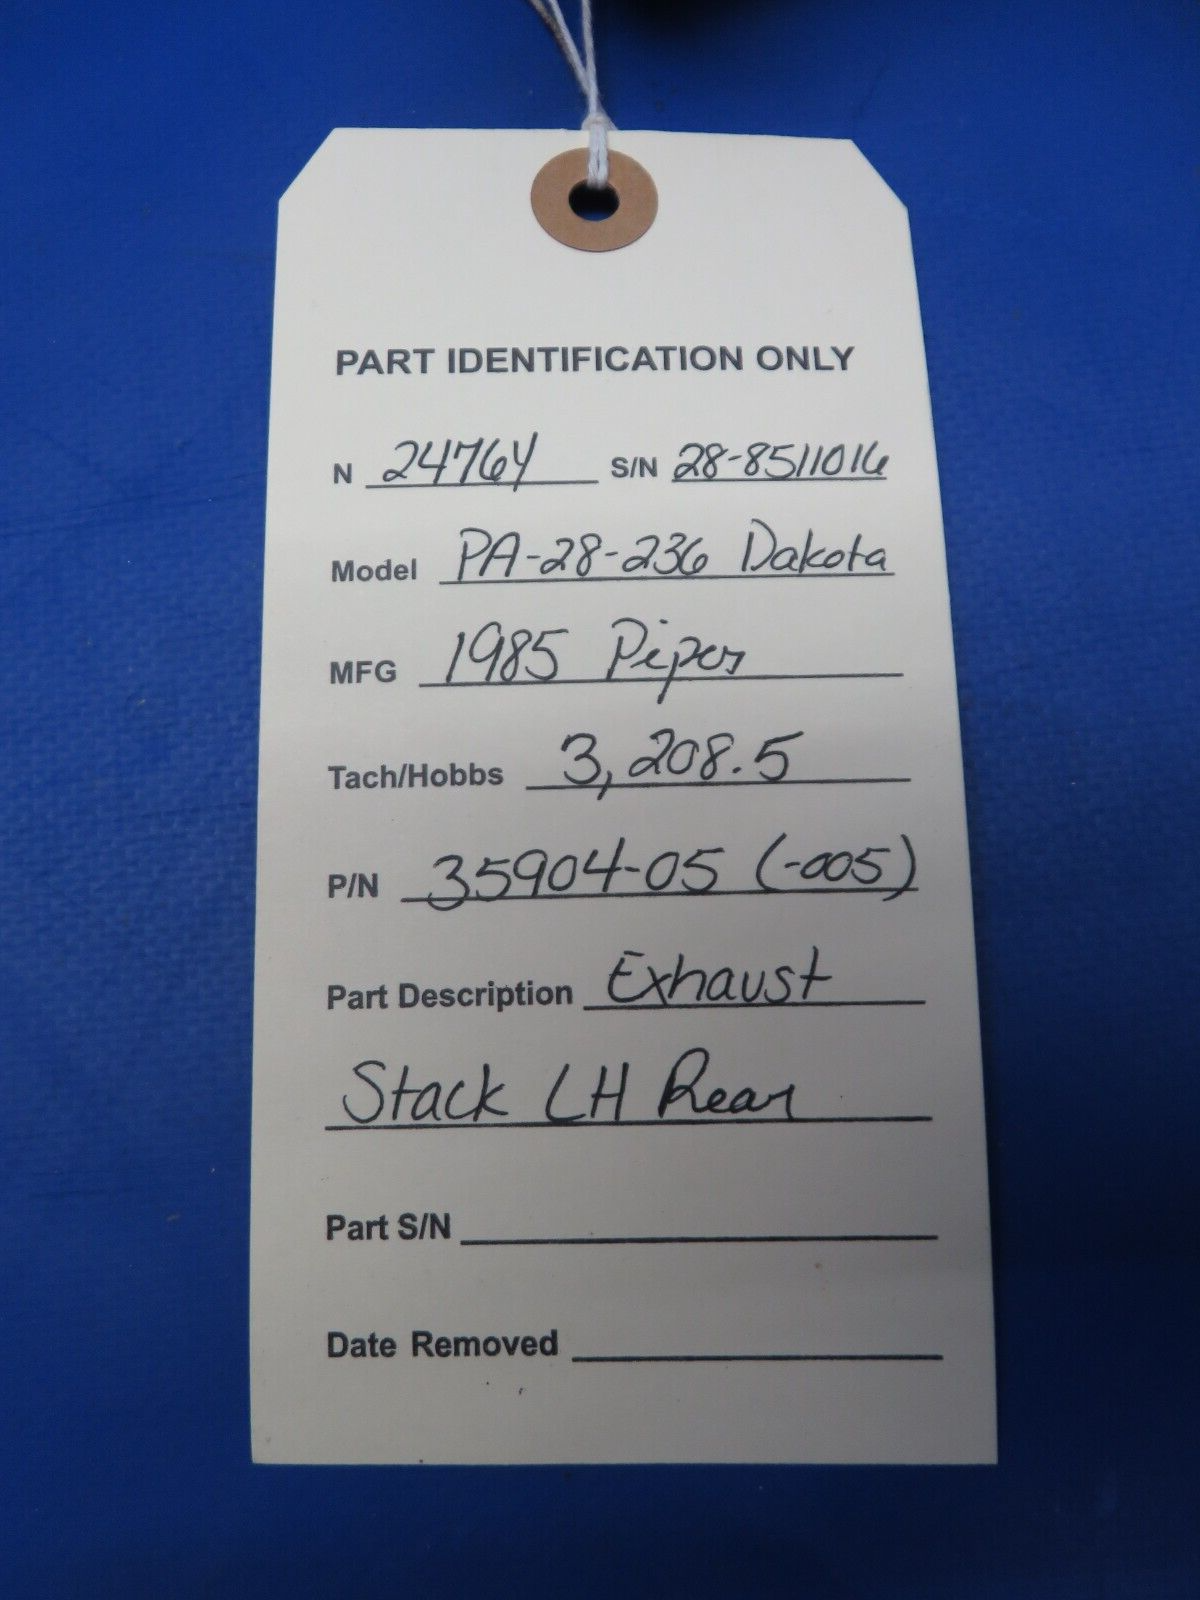 PART IDENTIFICATION ONLY
N 2476Y S/N 28-8511016
Model PA-28-236 Dakota
MFG 1985 Piper
Tach/Hobbs 3,208.5
P/N 35904-05 (-005)
Part Description Exhaust
Stack LH Rear
Part S/N
Date Removed